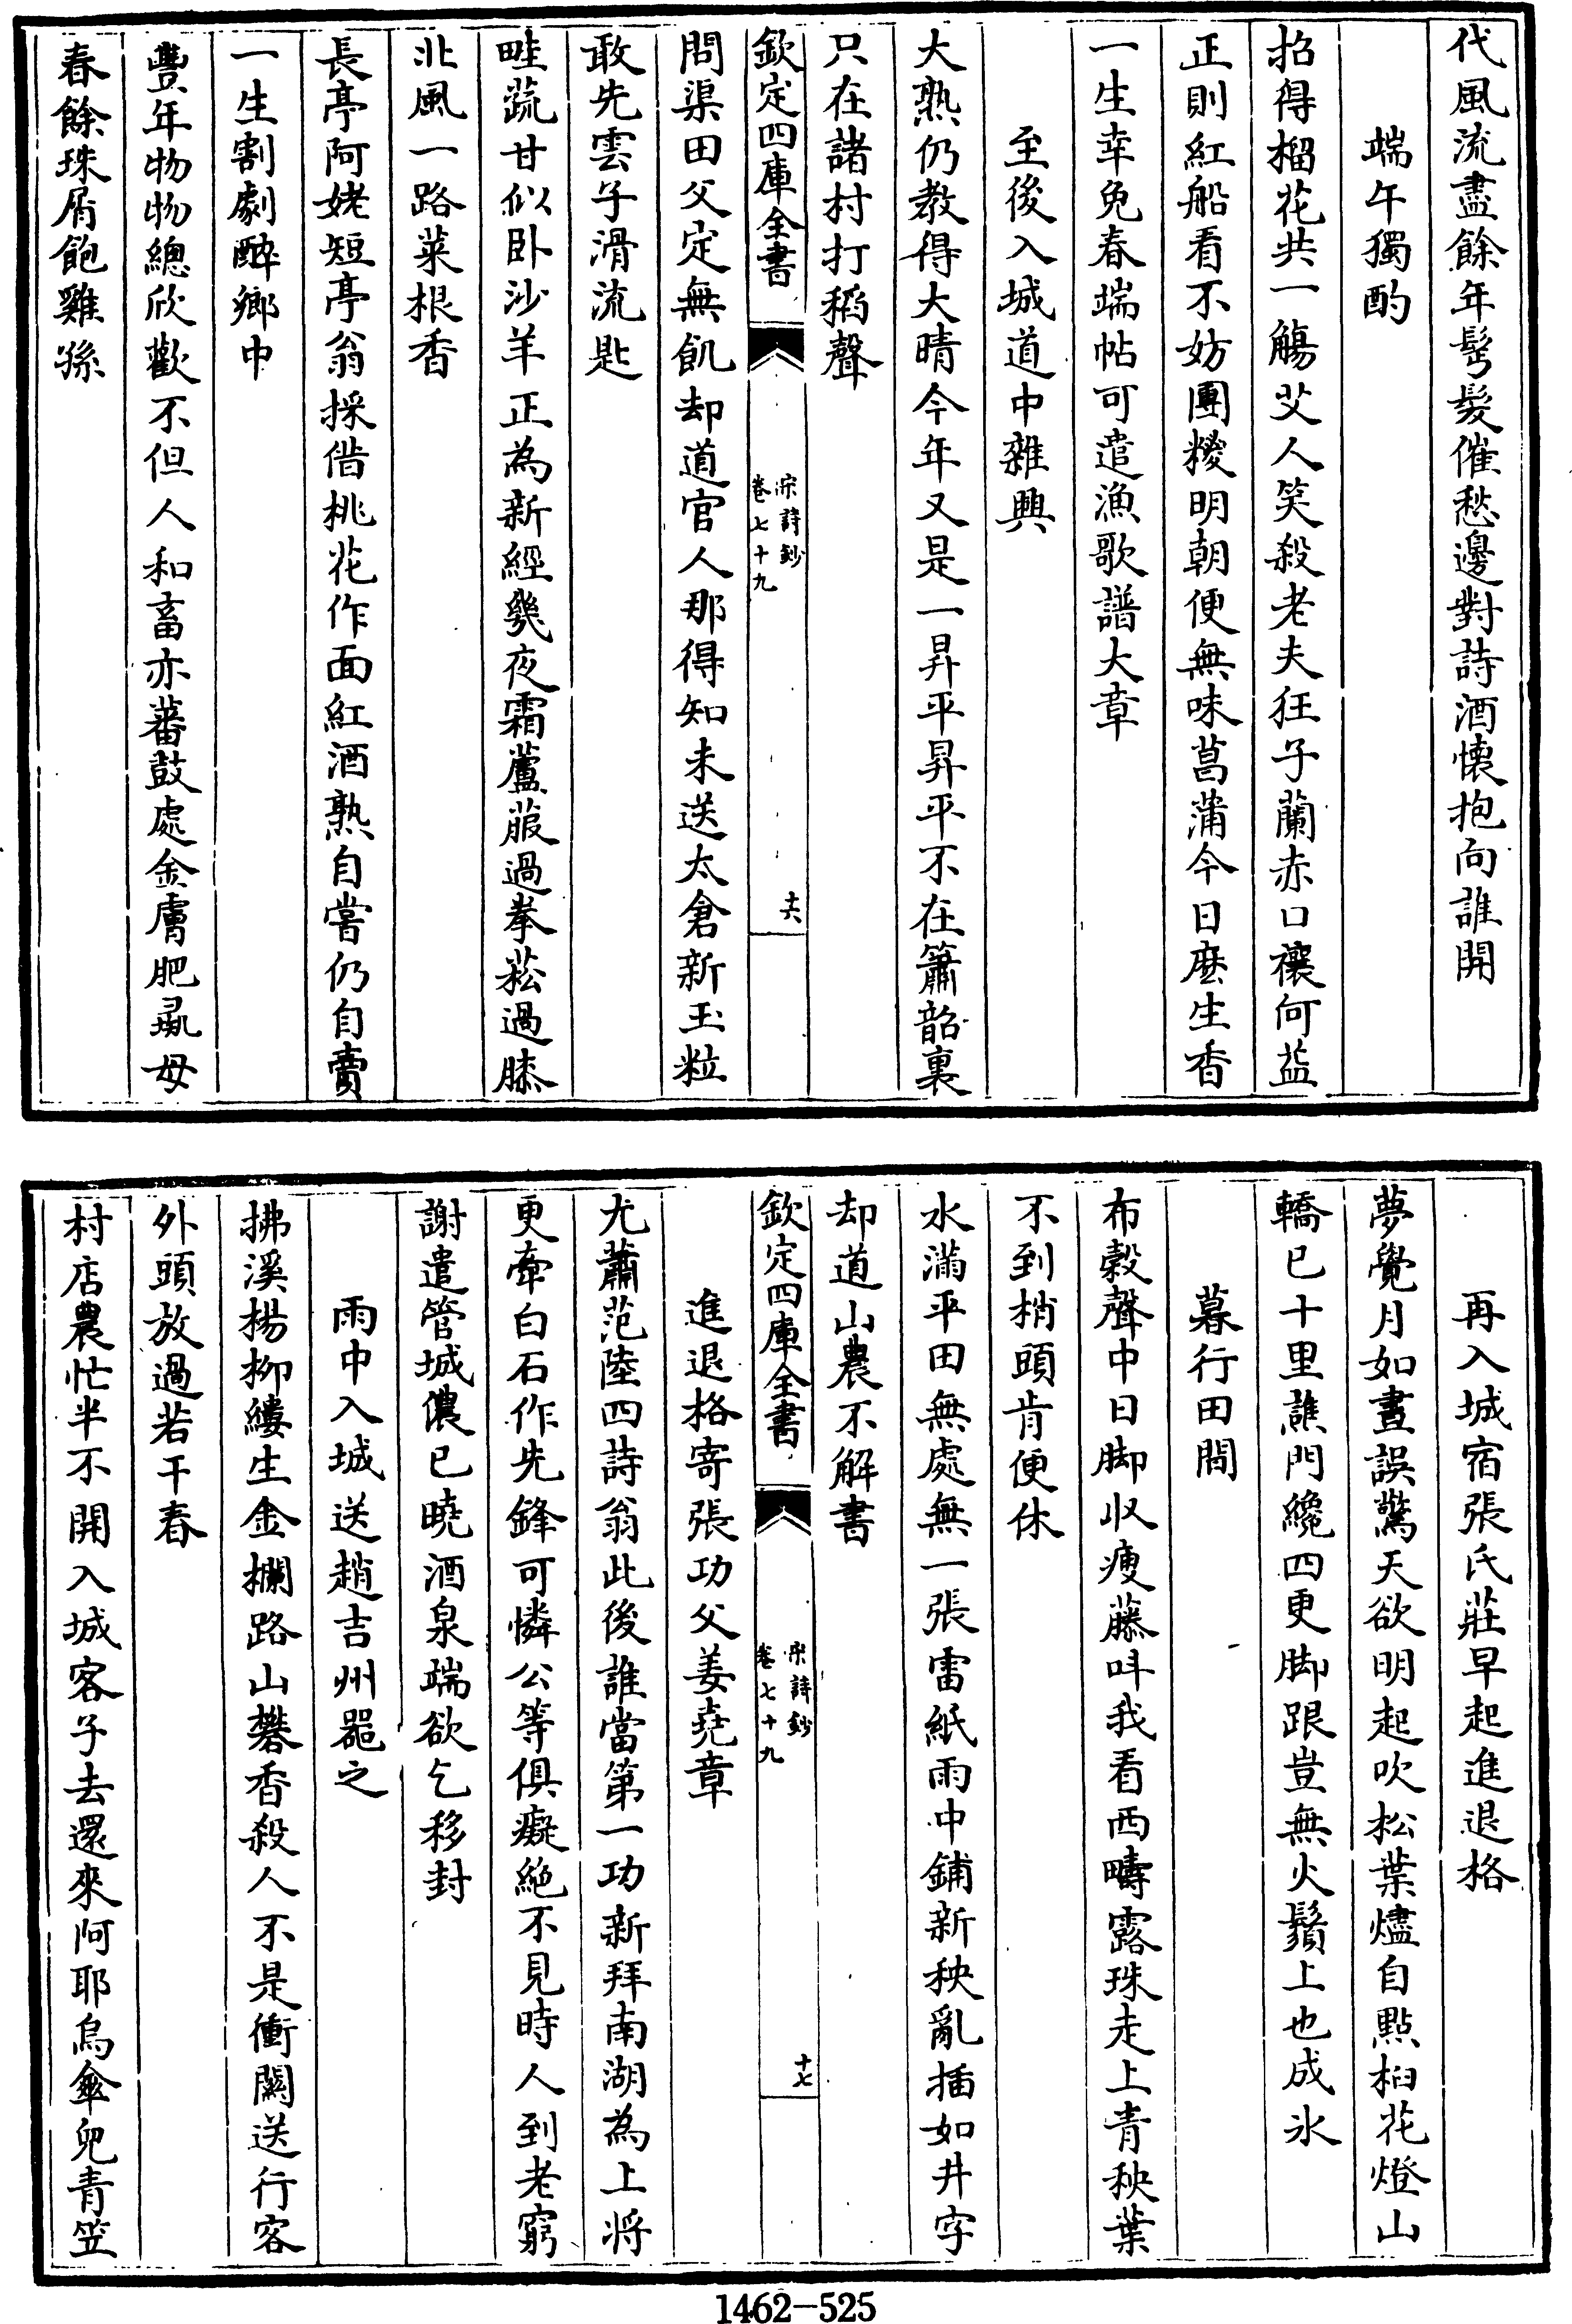 代風流盡餘年鬂髮催愁邊對詩酒懷抱向誰開
端午獨酌
招得榴花共一觴艾人笑殺老夫狂子蘭赤口禳何益
正則紅船看不妨團糉明朝便無味菖蒲今日麽生香
一生幸免春端帖可遣漁歌譜大章
至後入城道中雜興
大熟仍教得大晴今年又是一昇平昇平不在簫韶裏
只在諸村打稻聲
欽定四庫全書
宋詩鈔
卷七十九
十六
問渠田父定無飢却道官人那得知未送太倉新玉粒
敢先雲子滑流匙
畦蔬甘似卧沙羊正為新經幾夜霜蘆菔過拳菘過膝
北風一路菜根香
長亭阿姥短亭翁探借桃花作面紅酒熟自嘗仍自賣
一生割劇醉鄉中
豐年物物總欣歡不但人和畜亦蕃鼓處金膚肥彘母
春餘珠屑飽雞孫
再入城宿張氏莊早起進退格
夢覺月如晝誤驚天欲明起吹松葉燼自點桕花燈山
轎已十里譙門纔四更脚跟豈無火鬚上也成氷
暮行田間
布穀聲中日脚收瘦藤呌我看西疇露珠走上青秧葉
不到梢頭肯便休
水滿平田無處無一張雷紙雨中鋪新秧亂插如井字
却道山農不解書
欽定四庫全書
宋詩鈔
卷七十九
十七
進退格寄張功父姜堯章
尤蕭范陸四詩翁此後誰當第一功新拜南湖為上將
更牽白石作先鋒可憐公等俱癡絶不見時人到老窮
謝遣管城儂已曉酒泉端欲乞移封
雨中入城送趙吉州器之
拂溪楊柳縷生金攔路山礬香殺人不是衝闗送行客
外頭放過若干春
村店農忙半不開入城客子去還來阿耶烏傘兒青笠
1462-525